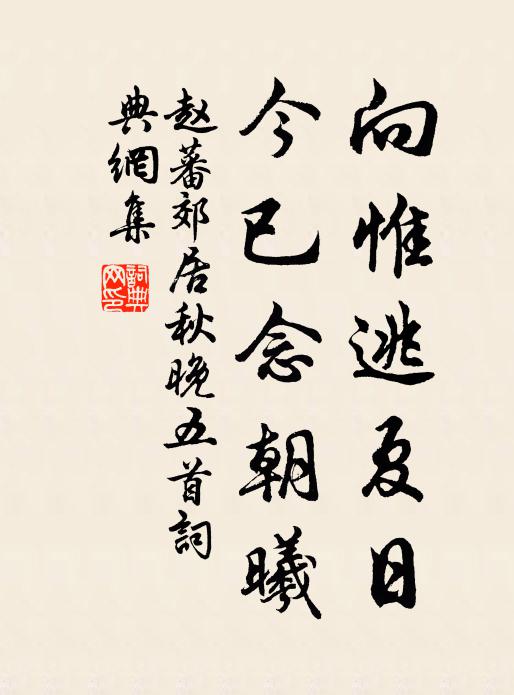 向惟逃夏日
今已念朝曦
赵蕃郊居秋晚五首詞
典網集
詞典网印